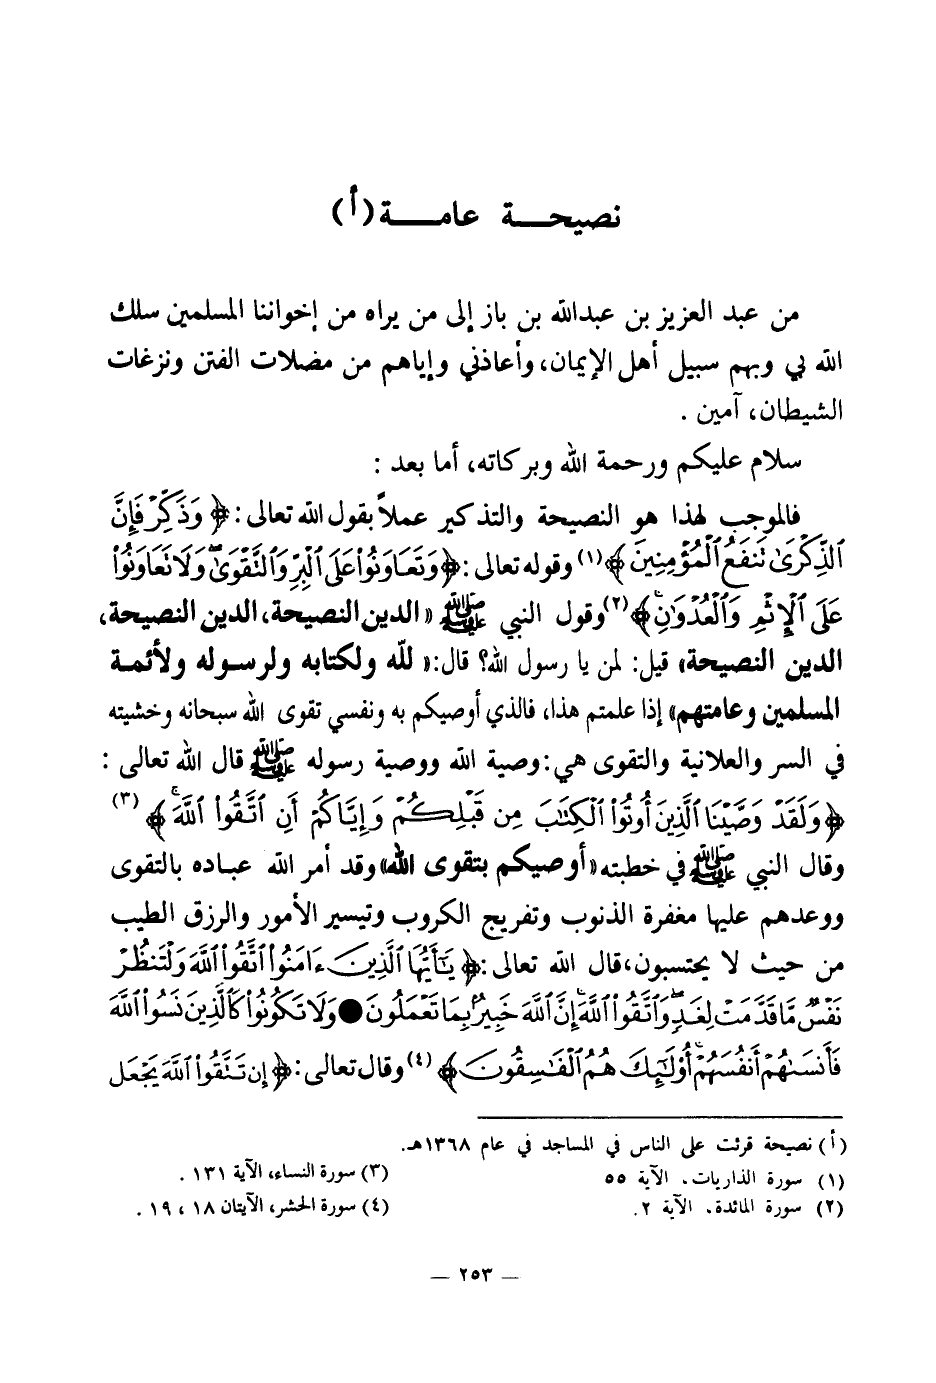 نصيحـــة عامـــة (أ)
من عبد العزيز بن عبدالله بن باز إلى من يراه من إخواننا المسلمين سلك
الله بي وبهم سبيل أهل الإيمان، وأعاذني وإياهم من مضلات الفتن ونزغات
الشيطان، آمين .
سلام عليكم ورحمة الله وبركاته، أما بعد :
فالموجب لهذا هو النصيحة والتذكير عملاً بقول الله تعالى : ﴿ وَذَكِّرْ فَإِنَّ
ٱلذِّكْرَىٰ تَنفَعُ ٱلْمُؤْمِنِينَ ﴾ (١) وقوله تعالى : ﴿ وَتَعَاوَنُوا۟ عَلَى ٱلْبِرِّ وَٱلتَّقْوَىٰ ۖ وَلَا تَعَاوَنُوا۟
عَلَى ٱلْإِثْمِ وَٱلْعُدْوَٰنِ ۚ ﴾ (٢) وقول النبي ﷺ « الدين النصيحة، الدين النصيحة،
الدين النصيحة» قيل: لمن يا رسول الله؟ قال: « لله ولكتابه ولرسوله ولأئمة
المسلمين وعامتهم» إذا علمتم هذا، فالذي أوصيكم به ونفسي تقوى الله سبحانه وخشيته
في السر والعلانية والتقوى هي: وصية الله ووصية رسوله ﷺ قال الله تعالى :
﴿ وَلَقَدْ وَصَّيْنَا ٱلَّذِينَ أُوتُوا۟ ٱلْكِتَٰبَ مِن قَبْلِكُمْ وَإِيَّاكُمْ أَنِ ٱتَّقُوا۟ ٱللَّهَ ۚ ﴾ (٣)
وقال النبي ﷺ في خطبته «أوصيكم بتقوى الله» وقد أمر الله عباده بالتقوى
ووعدهم عليها مغفرة الذنوب وتفريج الكروب وتيسير الأمور والرزق الطيب
من حيث لا يحتسبون، قال الله تعالى : ﴿ يَٰٓأَيُّهَا ٱلَّذِينَ ءَامَنُوا۟ ٱتَّقُوا۟ ٱللَّهَ وَلْتَنظُرْ
نَفْسٌ مَّا قَدَّمَتْ لِغَدٍ ۖ وَٱتَّقُوا۟ ٱللَّهَ ۚ إِنَّ ٱللَّهَ خَبِيرٌۢ بِمَا تَعْمَلُونَ ● وَلَا تَكُونُوا۟ كَٱلَّذِينَ نَسُوا۟ ٱللَّهَ
فَأَنسَىٰهُمْ أَنفُسَهُمْ ۚ أُو۟لَٰٓئِكَ هُمُ ٱلْفَٰسِقُونَ ﴾ (٤) وقال تعالى : ﴿ إِن تَتَّقُوا۟ ٱللَّهَ يَجْعَل
(أ) نصيحة قرئت على الناس في المساجد في عام ١٣٦٨هـ.
(١) سورة الذاريات، الآية ٥٥
(٢) سورة المائدة، الآية ٢.
(٣) سورة النساء، الآية ١٣١ .
(٤) سورة الحشر، الآيتان ١٨ ، ١٩ .
— ٢٥٣ —